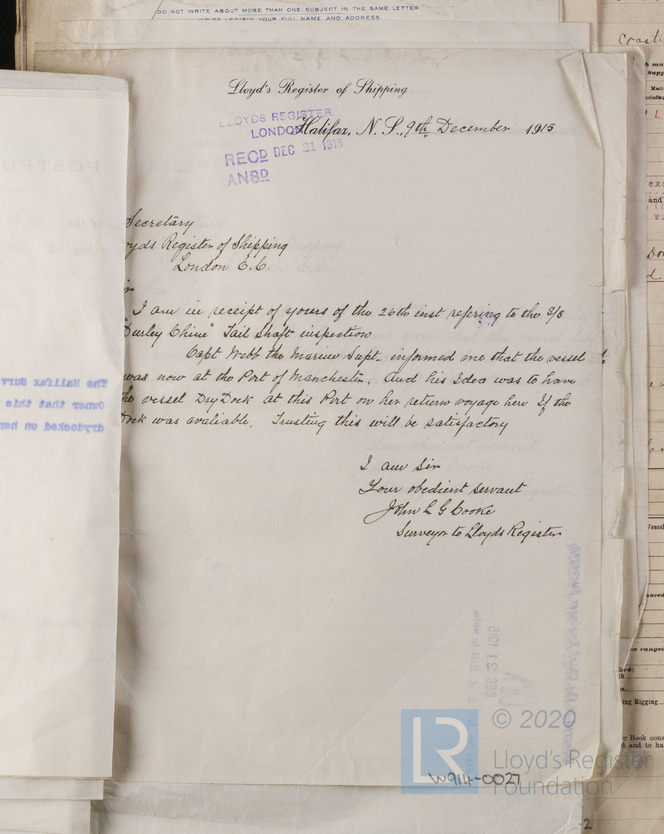 DO NOT WRITE ABOUT MORE THAN ONE SUBJECT IN THE SAME LETTER
WRITE LEGIBLY YOUR FULL NAME AND ADDRESS
Lloyd's Register of Shipping
LLOYDS REGISTER
LONDON
RECD DEC 21 1915
ANSD
Halifax, N. S., 9th December 1915
Secretary
yds Register of Shipping
London E.C.
ir
I am in receipt of yours of the 26th inst refering to the S/S
"Durley Chine" Tail Shaft inspection
Capt Webb the Marine Supt. informed me that the vessel
was now at the Port of Manchester. And his Idea was to have
the vessel DryDock at this Port on her return voyage here If the
Dock was avaliable. Trusting this will be satisfactory
I am Sir
Your obedient servant
John L G Cooke
Surveyor to Lloyds Register
The Halifax Surv
Owner that this
drydocked on her
DEC 21 1915
W914-0027
LR
© 2020
Lloyd's Register
Foundation
coast
ing Rigging
er Book cons
d and to ha
2